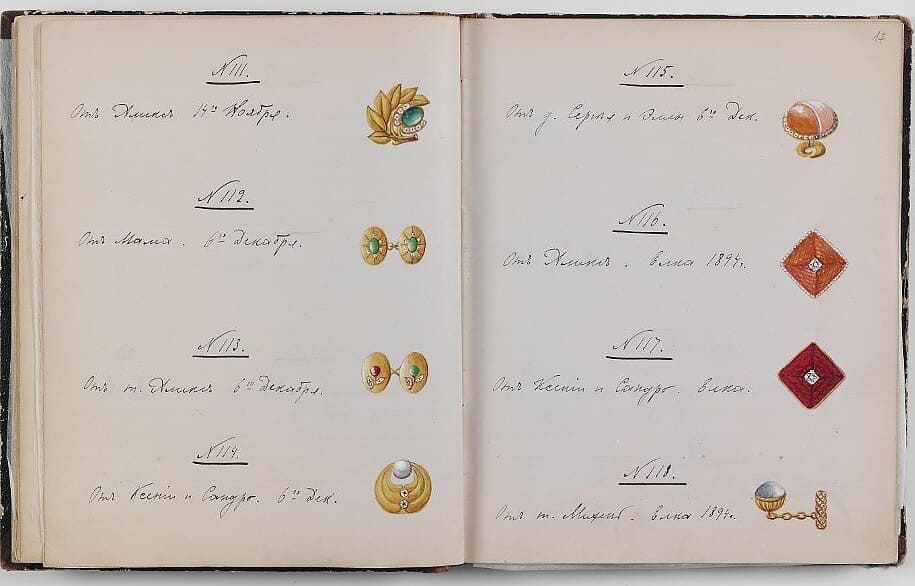 N 111.
Отъ Аликсъ 14го Ноября.
N 112.
Отъ Мама. 6го Декабря.
N 113.
Отъ т. Аликсъ 6го Декабря.
N 114.
Отъ Ксеніи и Сандро. 6го Дек.
17
N 115.
Отъ д. Сергѣя и Эллы 6го Дек.
N 116.
Отъ Аликсъ. Елка 1894г.
N 117.
Отъ Ксеніи и Сандро. Елка.
N 118.
Отъ т. Елка 1894г.